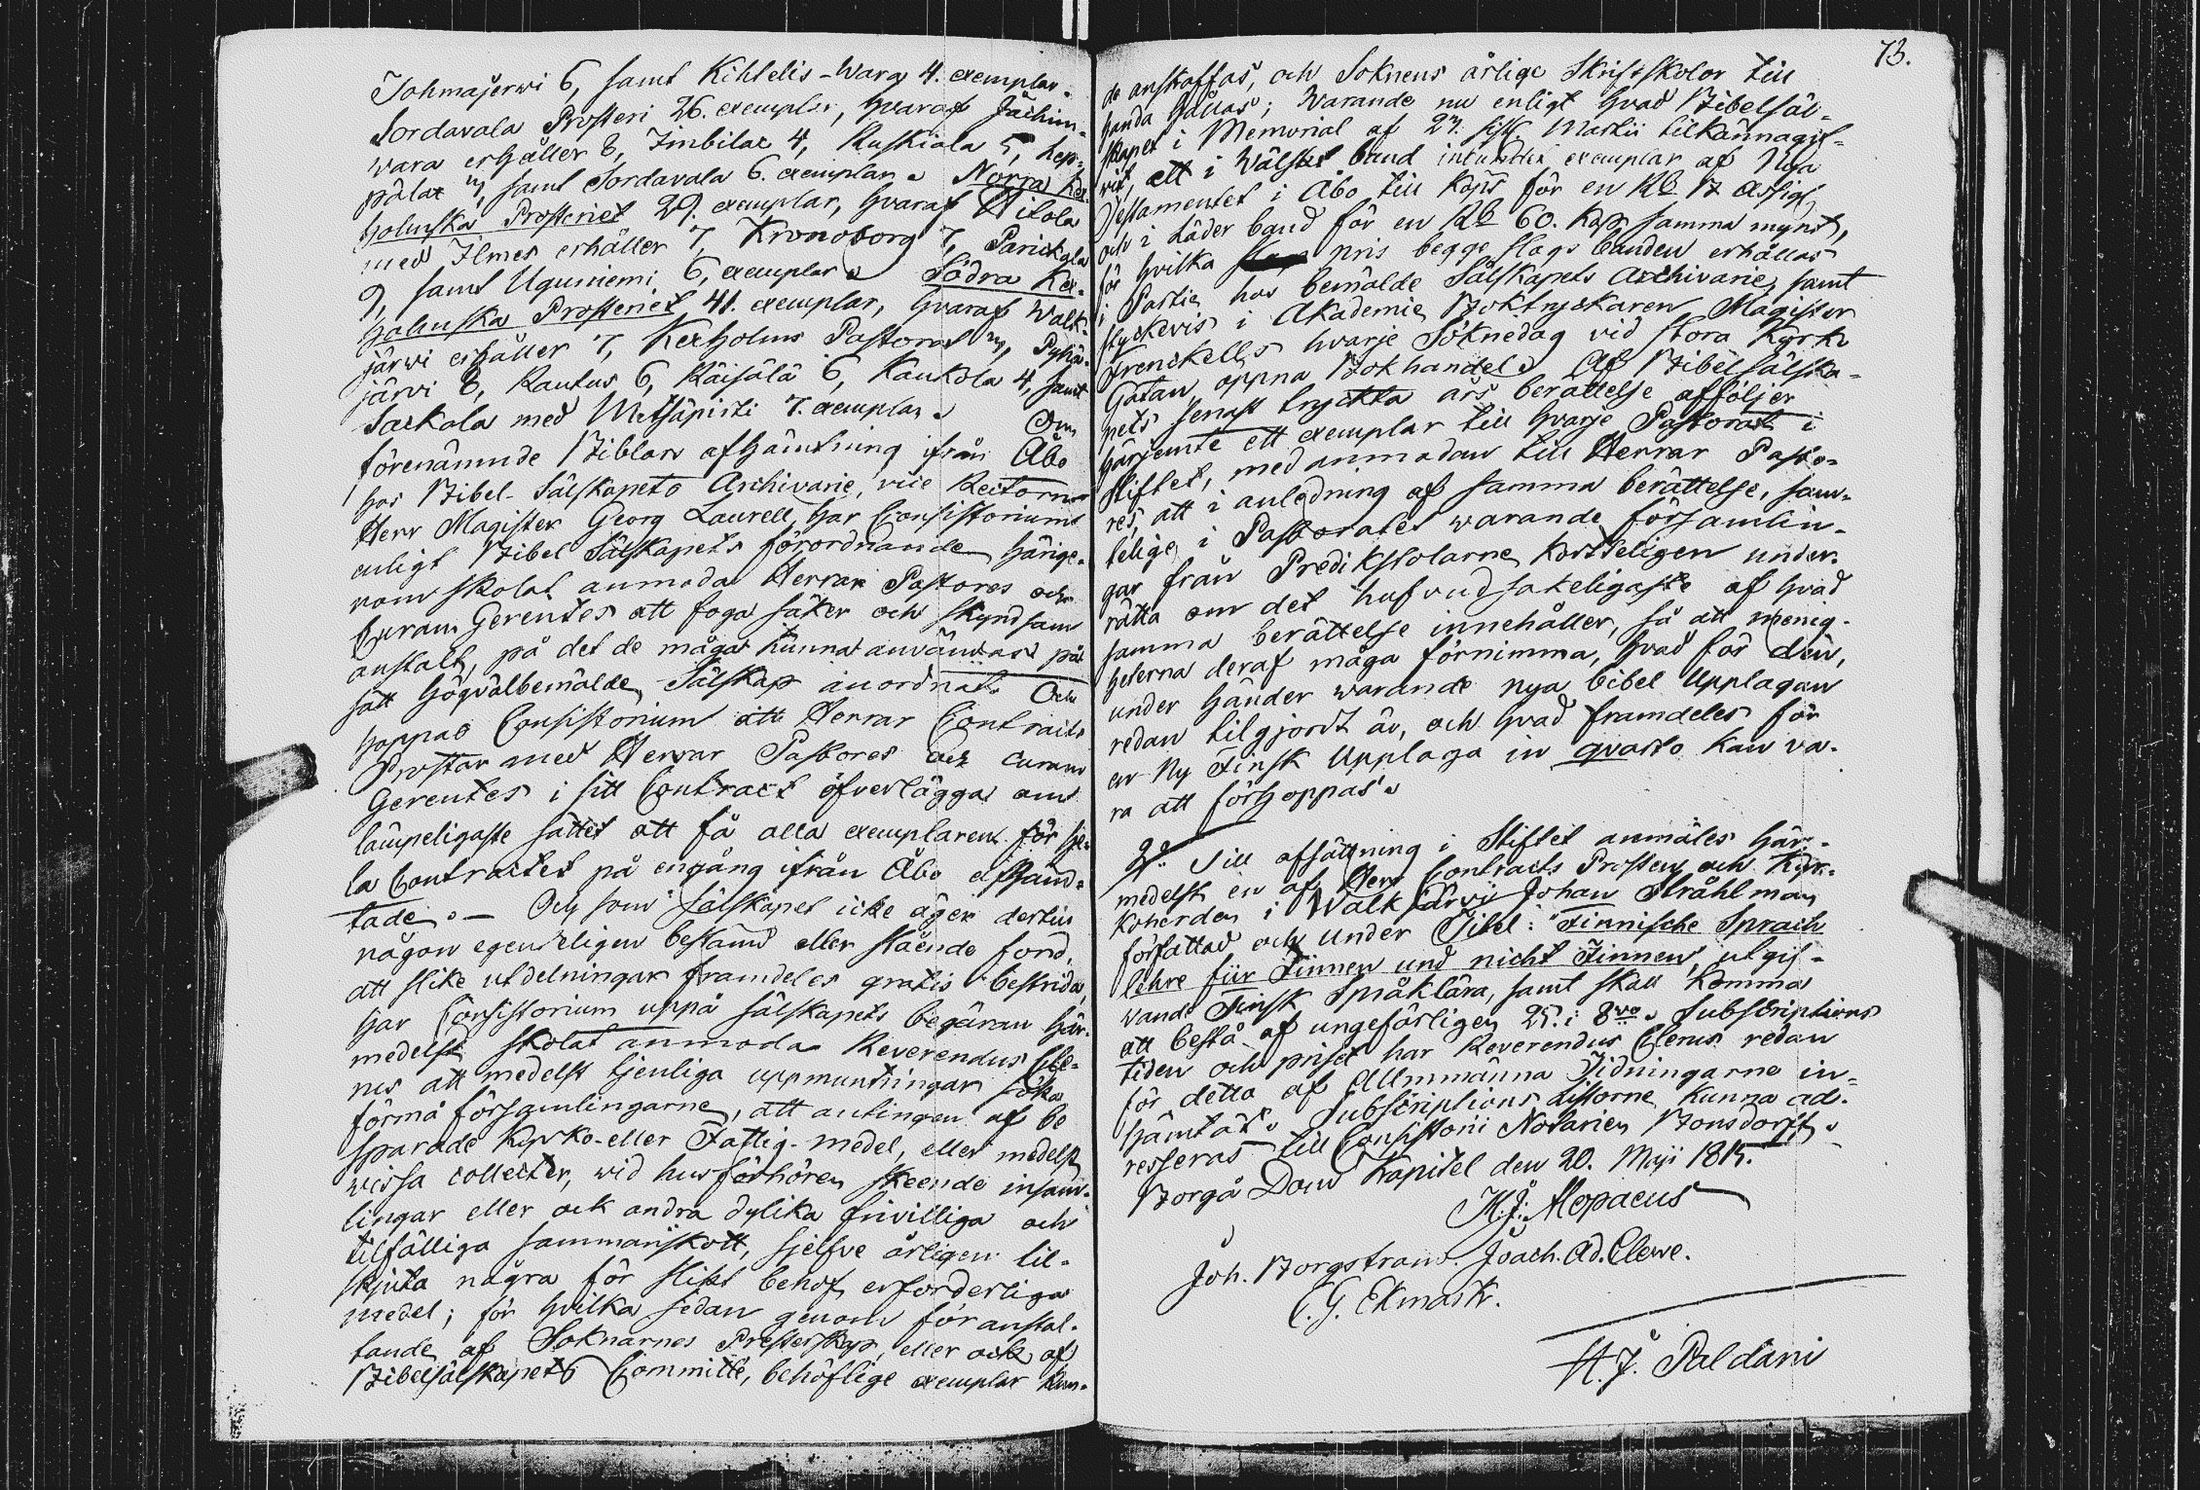 Tohmajerwi 6, samt Kihtelis-Wara 4. exemplar.
Sordavala Prosteri 26. exemplar, hvaraf Jächim-
wara erhåller 8, Imbilax 4, Ruskiala 5, Lep-
pälax 7, samt Sordavala 6. exemplar. Norra Kex-
holmska Prosteriet 29. exemplar, hvaraf Hitola
med Ilmes erhåller 7, Kronoborg 7, Parickala
9, samt Uguniemi 6, exemplar. Södra Kex-
holmska Prosteriet 41. exemplar, hvaraf Walk-
järwi erhåller 7, Kexholms Pastorat 3, Pyhä-
järvi 8, Rautus 6, Räisälä 6, Kaukola 4, samt
Sackola med Metsäpirti 7. exemplar. Om
förenämnde Biblars afhämtning ifrån Åbo
hos Bibel-Sälskapets Archivarie, vice Rectorn
Herr Magister Georg Laurell, har Consistorium
enligt Bibel Sälskapets förordnande härige-
nom skolat anmoda Herrar Pastores och
Curam Gerentes att foga säker och skyndsam
anstalt, på det de måga kunna användas på
sätt högvälbemälde Sälskap anordnat. Och
hoppas Consistorium att Herrar Contracts
Prostar med Herrar Pastores och curam
Gerentes i sitt Contract öfverlägga om
lämpeligaste sättet att få alla exemplaren för he-
la Contractet på engång ifrån Åbo afhäm-
tade. — Och som Sälskapet icke äger dertill
någon egenteligen bestämd eller stående fond,
att slike utdelningar framdeles gratis bestrida,
har Consistorium uppå sälskapets begäran här-
medelst skolat anmoda Reverendus Cle-
rus att medelst tjenliga uppmuntringar söka
förmå församlingarne, att antingen af be
sparade Kyrko- eller Fattig-medel, eller medelst
vissa collecter, wid husförhören skeende insam-
lingar eller ock andra dylika frivilliga och
tilfälliga sammanskott, sjelfve årligen til-
skjuta några för slikt behof erforderliga
medel; för hvilka sedan genom föranstal-
tande af Soknarnes Presterskap, eller ock af
Bibelsälskapets Committé, behöflige exemplar kun-
73.
de anskaffas, och Soknens årlige Skriftskolor till
handa hållas; Warande nu enligt hvad Bibelsäl-
skapet i Memorial af 27. sistl. Martii tilkännagif-
vit, att i Wälskt band inbundet exemplar af Nya
Testamentet i Åbo till köps för en Rub. B. Assign.
och i Läder band för en Rub 60. kop samma mynt,
för hvilka pris begge slags banden erhållas
i Partie hos bemälde Sälskapets Archivarie, samt
styckevis i Akademie Boktryckaren Magister
Frenckells hvarje Söknedag vid stora Kyrko
Gatan öppna Bokhandel. Af Bibelsälska-
pets senast tryckta års berättelse afföljer
härjemte ett exemplar till hvarje Pastorat i
stiftet, med anmodan till Herrar Pasto-
res, att i anledning af samma berättelse, sam-
telige i Pastoratet warande församlin-
gar från Predikstolarne kortteligen under-
rätta om det hufvudsakeligaste af hvad
samma berättelse innehåller, så att menig-
heterna deraf måga förnimma, hvad för den,
under händer warande nya bibel Upplagan
redan tilgjordt är, och hvad framdeles för
en Ny Finsk Upplaga in quarto kan va-
ra att förhoppas.
2:o Till afsättning i Stiftet anmäles här-
medelst en af Herr Contracts Prosten och Kyr-
koherden i Walkjärvi Johan Stråhlman
författad och under Titel: Finnische Sprach
lehre für Finnen und nicht Finnen, utgif-
vande Finsk Språklära, samt skall komma
att bestå af ungefärligen 25. i 8:vo. Subscriptions
tiden och priset har Reverendus Clerus redan
för detta af Allmmänna Tidningarne in-
hämtat. Subscriptions Listorne kunna ad-
resseras till Consistorii Notarien Bonsdorff.
Borgå Dom Kapitel den 20. Maji 1815.
M. J. Alopaeus
Joh. Borgström. Joach. Ad. Cleve.
C. G. Ekmark.
H. J. Paldani